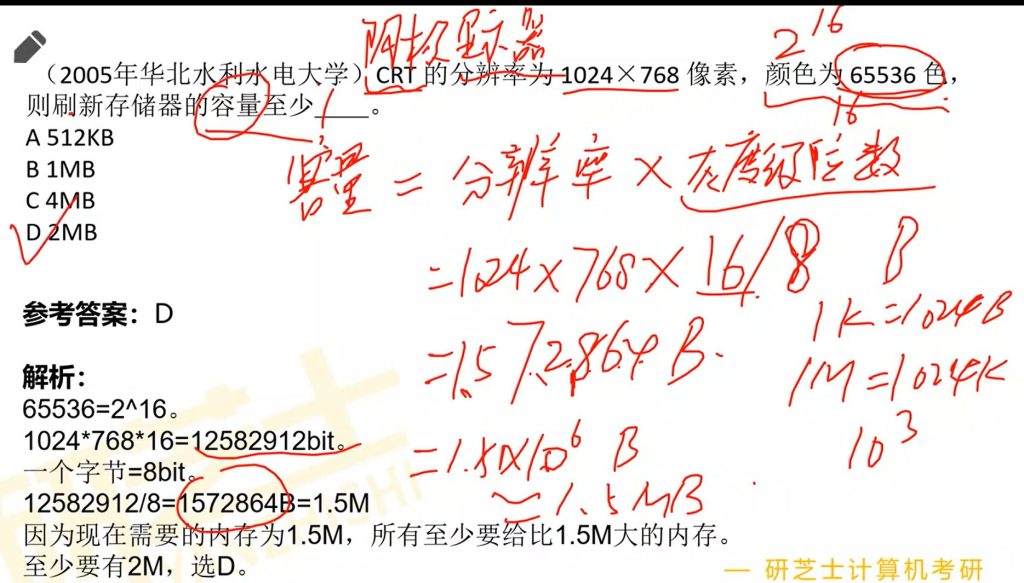 阴极显示器
2^16
（2005年华北水利水电大学）CRT 的分辨率为 1024×768 像素，颜色为 65536 色，
16
则刷新存储器的容量至少____。
A 512KB
B 1MB
C 4MB
D 2MB
容量 = 分辨率 × 灰度级位数
=1024×768×16/8 B
1K=1024B
=1572864B.
1M=1024K
10^3
=1.5×10^6 B
≈1.5MB
参考答案：D
解析：
65536=2^16。
1024*768*16=12582912bit。
一个字节=8bit。
12582912/8=1572864B=1.5M
因为现在需要的内存为1.5M，所有至少要给比1.5M大的内存。
至少要有2M，选D。
— 研芝士计算机考研